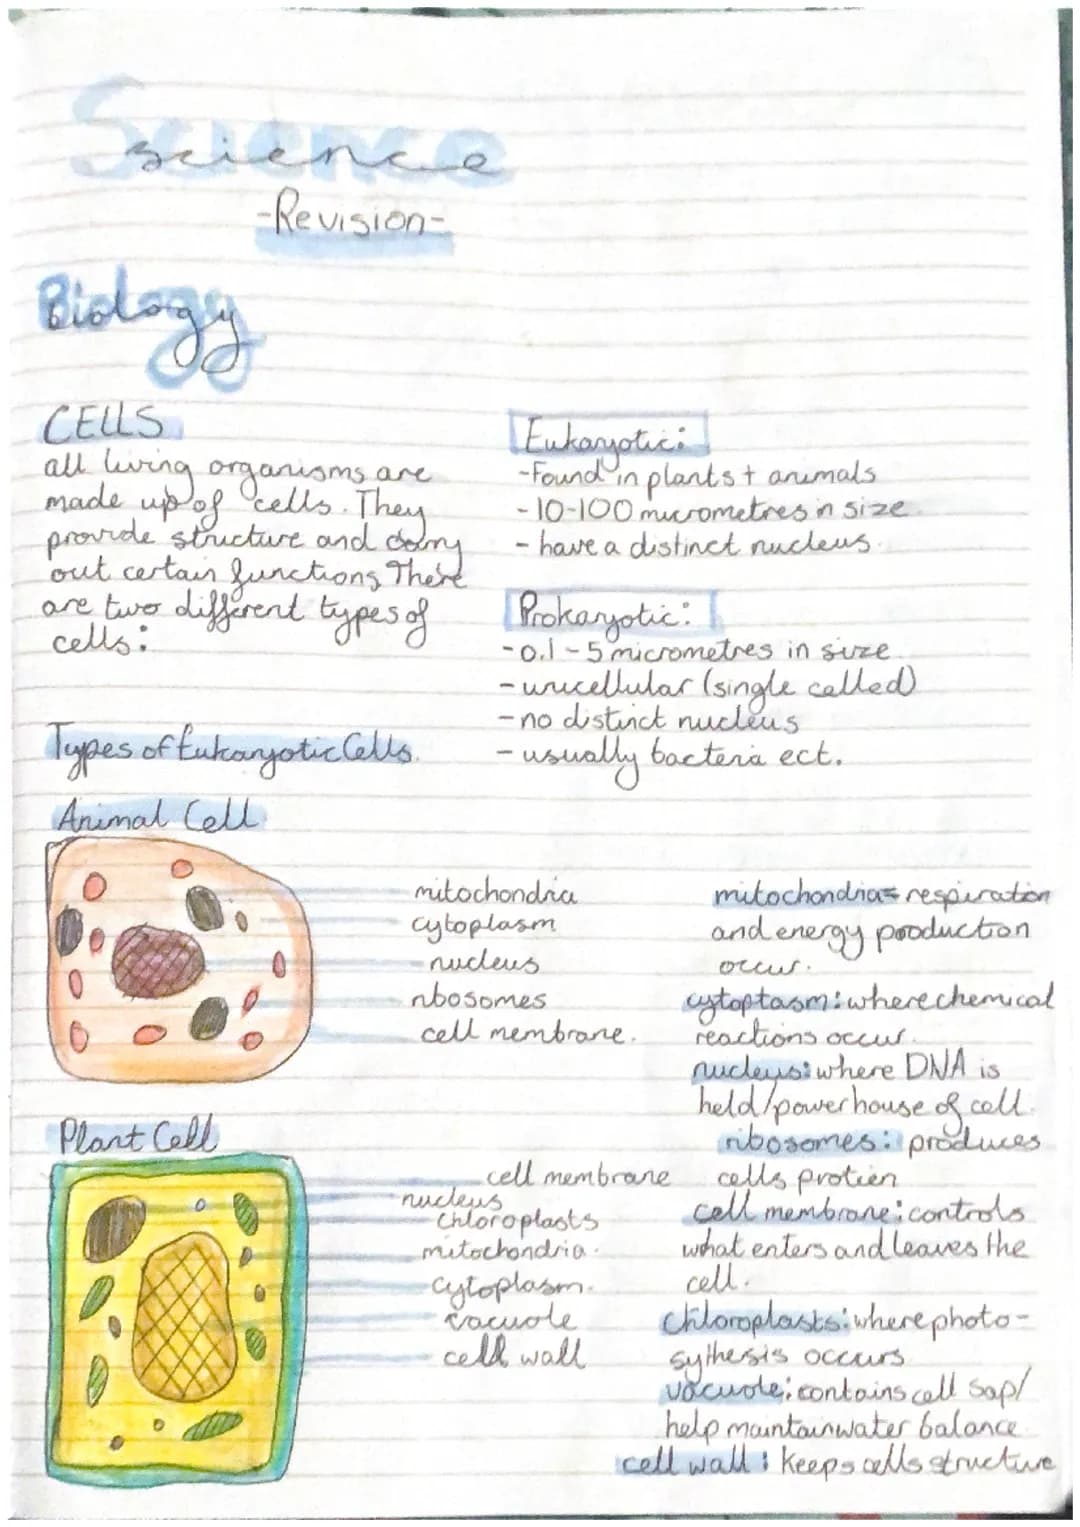 Science
science
-Revision-
Biology
CELLS
all living organisms are
made up of cells. They
provide structure and carry
out certain functions, There
are two different types of
cells:
Eukaryotic:
-Found in plants + animals
-10-100 micrometres in size.
- have a distinct nucleus.
Prokaryotic:
-0.1-5 micrometres in size.
-unicellular (single celled)
-no distinct nucleus
- usually bacteria ect.
Types of Eukaryotic Cells.
Animal Cell
mitochondria
cytoplasm
nucleus
ribosomes
cell membrane.
Plant Cell
cell membrane
nucleus
chloroplasts
mitochondria.
cytoplasm.
vacuole
cell wall
mitochondria= respiration
and energy production
occur.
cytoplasm: where chemical
reactions occur.
nucleus: where DNA is
held/powerhouse of cell.
ribosomes: produces
cells protien
cell membrane: controls
what enters and leaves the
cell.
chloroplasts: where photo-
sythesis occurs
vacuole: contains cell sap/
help maintain water balance
cell wall: keeps cells structure